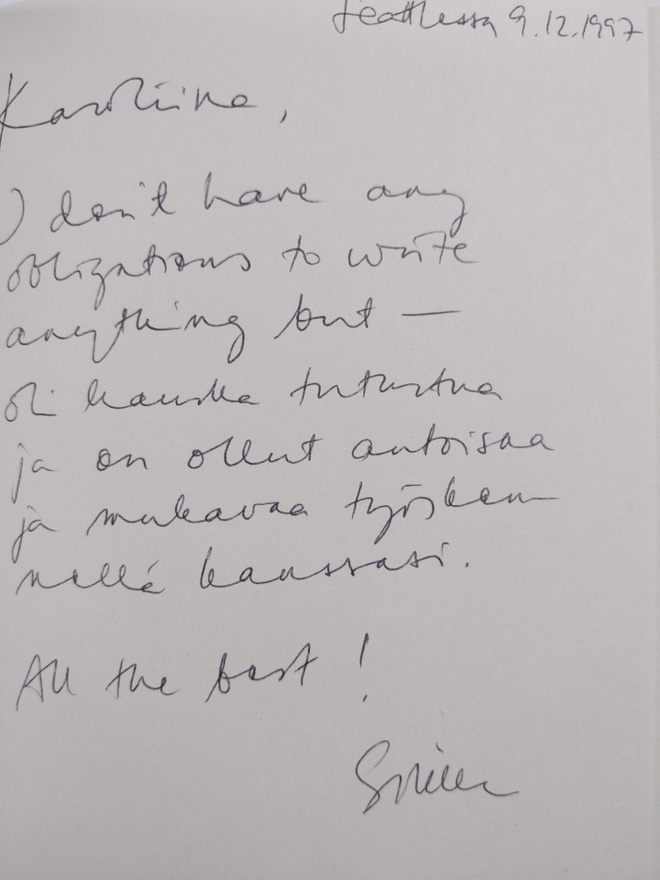 Seattlessa 9.12.1997
Karoliina,
I don't have any
obligations to write
anything but —
oli hauska tutustua
ja on ollut antoisaa
ja mukavaa työsken—
nellä kanssasi.
All the best!